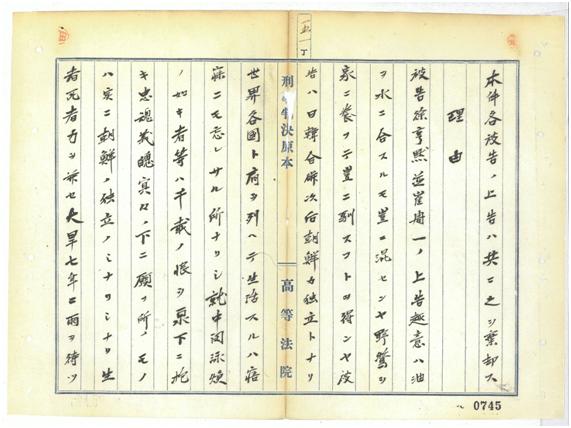 本件各被告ノ上告ハ共ニ之ヲ棄却ス
理由
被告徐亨黙並崔庸一ノ上告趣意ハ油
ヲ水ニ合スルモ豈ニ混センヤ野鶩ヲ
家ニ養フテ豈ニ馴スコトヲ得ンヤ被
告ハ日韓合併次后朝鮮カ独立トナリ
刑 判決原本 高等法院
世界各国ト肩ヲ列ヘテ生活スルハ寤
寐ニモ忘レサル所ナリシ就中閔泳煥
ノ如キ者等ハ千載ノ恨ヲ泉下ニ抱
キ忠魂義魄冥々ノ下ニ願フ所ノモノ
ハ実ニ朝鮮ノ独立ノミナリシナリ生
者死者力ヲ并セ大旱七年ニ雨ヲ待ツ
0745